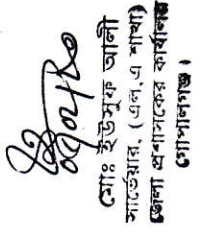 মোঃ ইউসুফ আলী
সার্ভেয়ার, (এল, এ শাখা)
জেলা প্রশাসকের কার্যালয়
গোপালগঞ্জ।